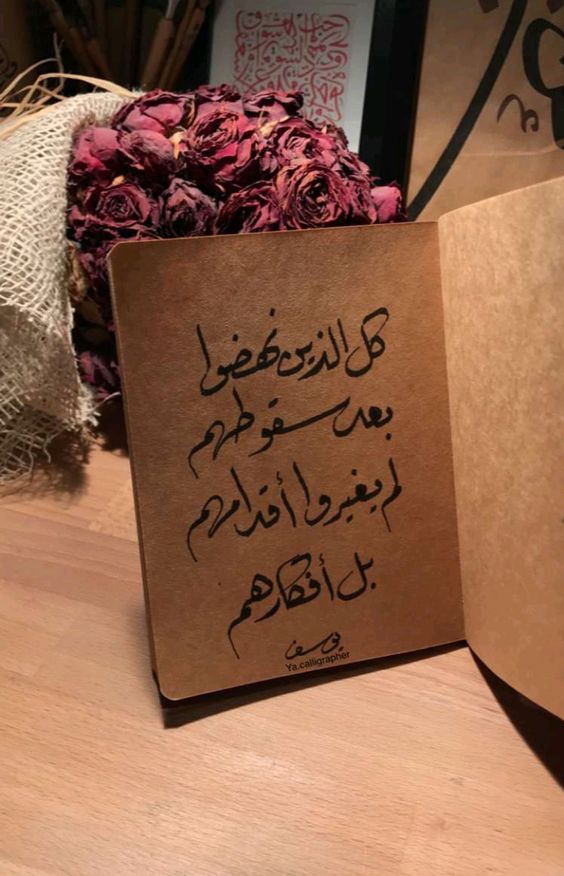 كل الذين نهضوا
بعد سقوطهم
لم يغيروا أقدامهم
بل أفكارهم
يوسف
Ya.calligrapher